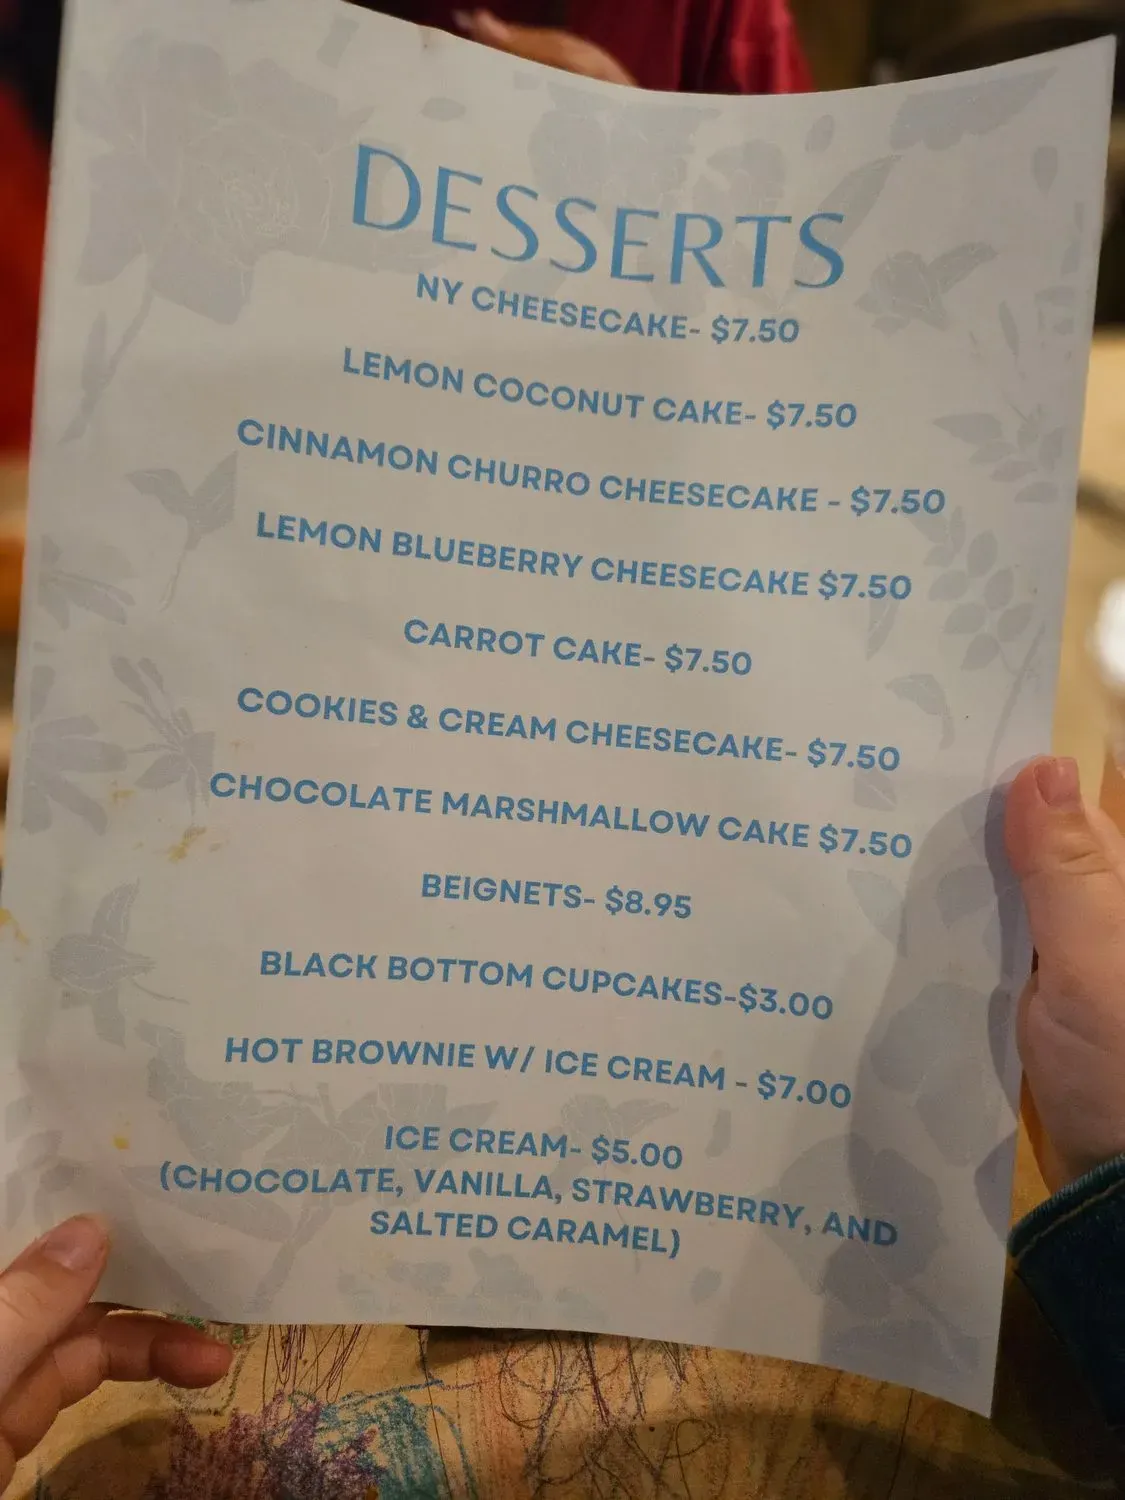 DESSERTS
NY CHEESECAKE- $7.50
LEMON COCONUT CAKE- $7.50
CINNAMON CHURRO CHEESECAKE - $7.50
LEMON BLUEBERRY CHEESECAKE $7.50
CARROT CAKE- $7.50
COOKIES & CREAM CHEESECAKE- $7.50
CHOCOLATE MARSHMALLOW CAKE $7.50
BEIGNETS- $8.95
BLACK BOTTOM CUPCAKES-$3.00
HOT BROWNIE W/ ICE CREAM - $7.00
ICE CREAM- $5.00
(CHOCOLATE, VANILLA, STRAWBERRY, AND
SALTED CARAMEL)